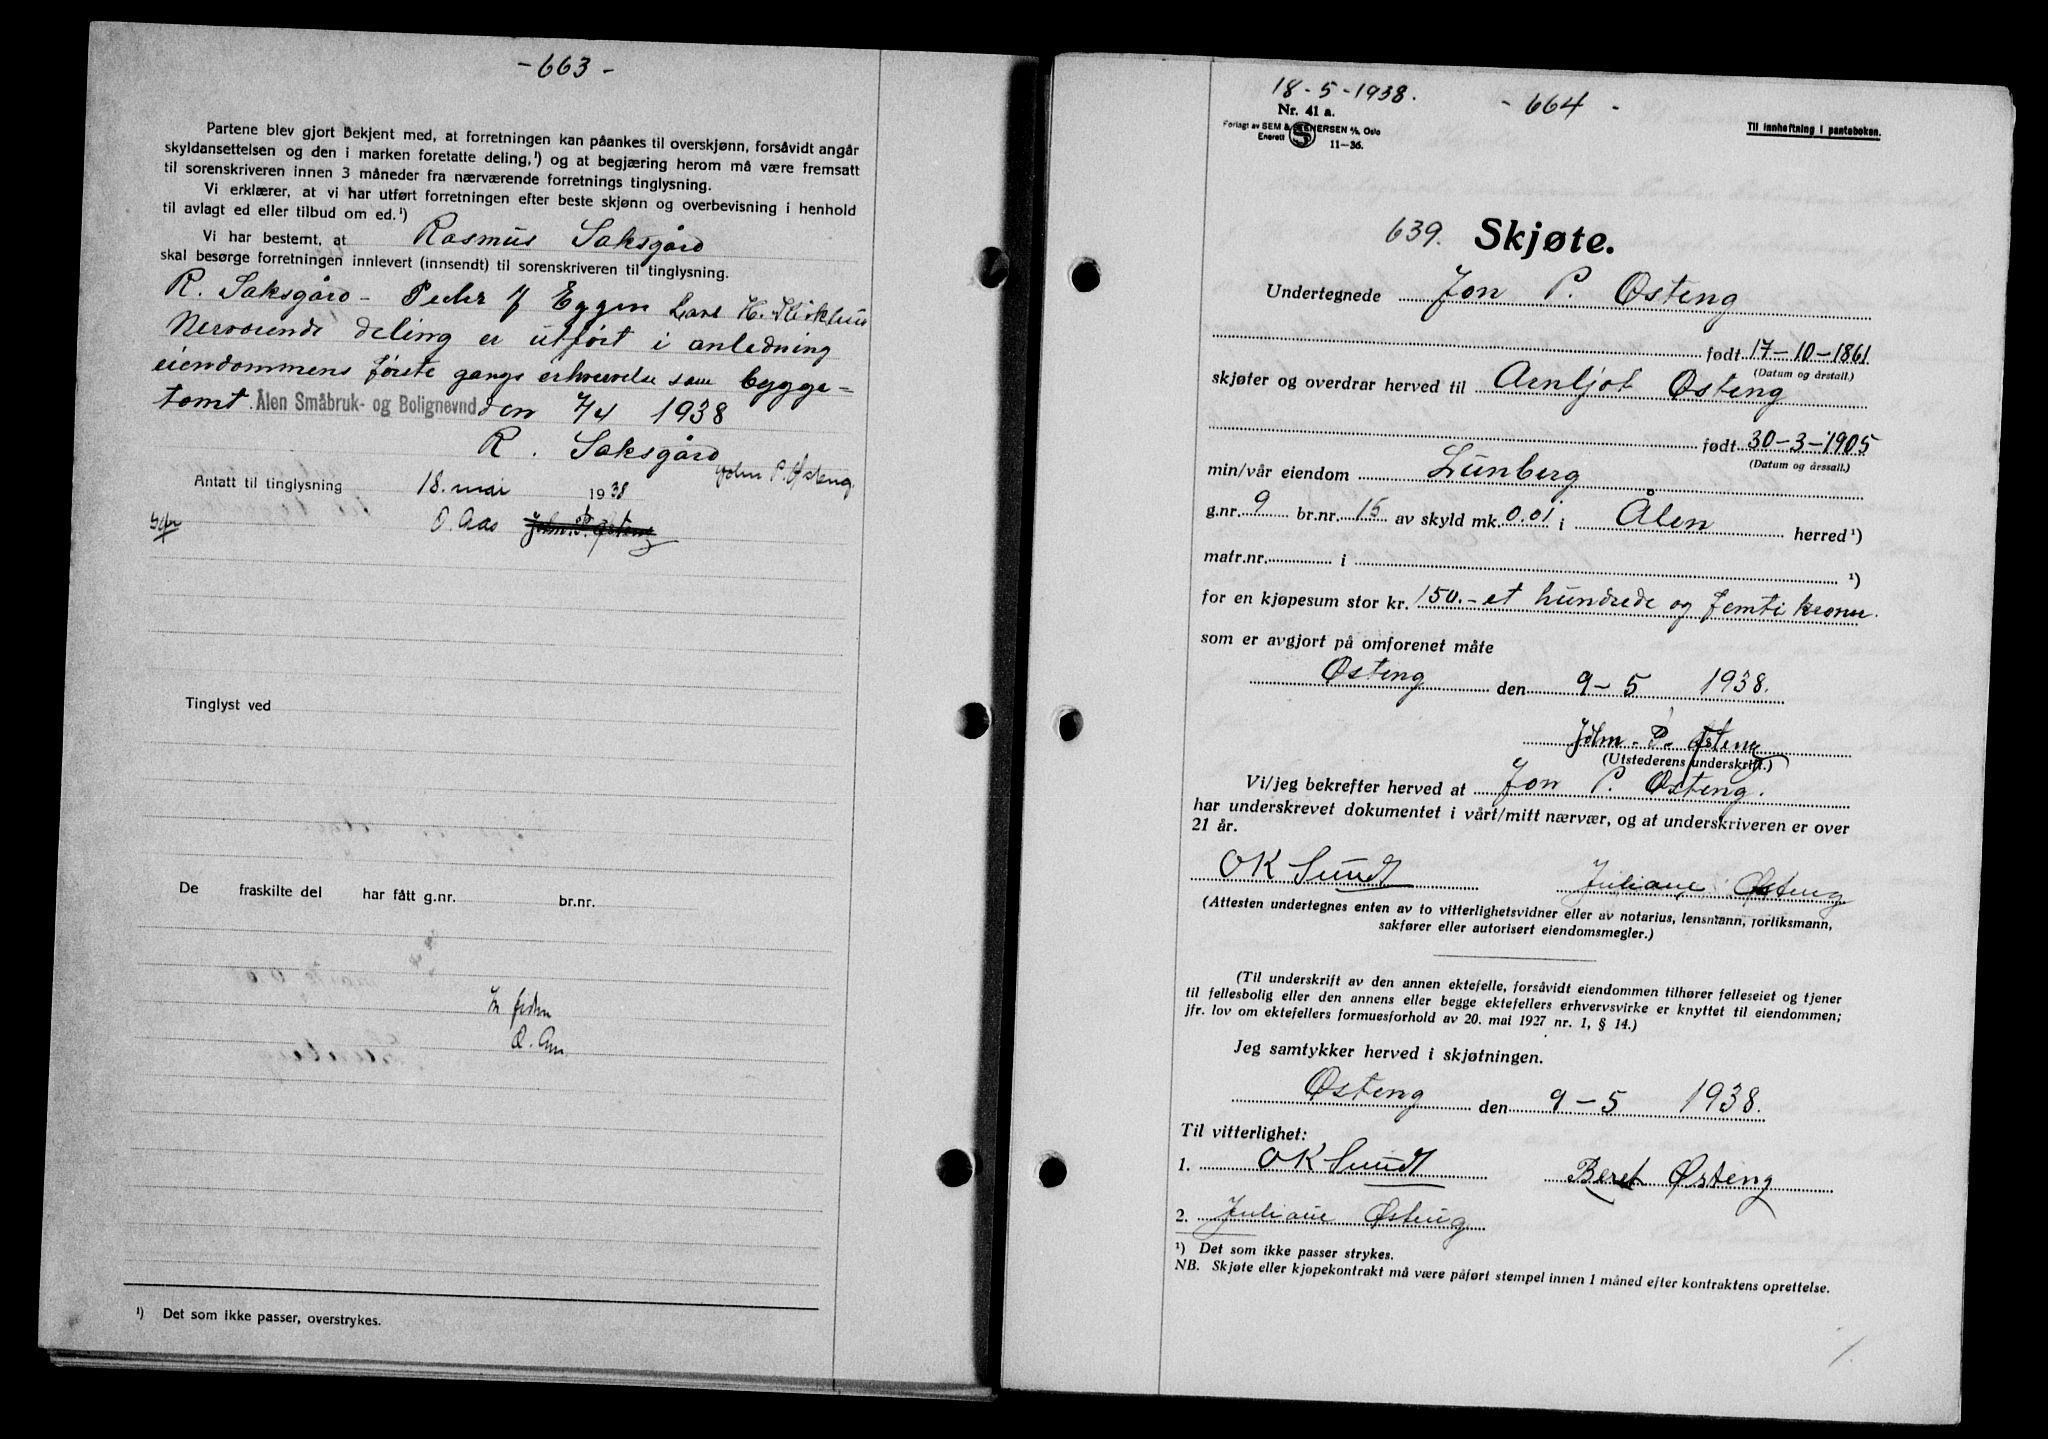 - 663 -
Partene blev gjort bekjent med, at forretningen kan påankes til overskjønn, forsåvidt angår
skyldansettelsen og den i marken foretatte deling,¹) og at begjæring herom må være fremsatt
til sorenskriveren innen 3 måneder fra nærværende forretnings tinglysning.
Vi erklærer, at vi har utført forretningen efter beste skjønn og overbevisning i henhold
til avlagt ed eller tilbud om ed.¹)
Vi har bestemt, at Rasmus Saksgård
skal besørge forretningen innlevert (innsendt) til sorenskriveren til tinglysning.
R. Saksgård - Peder J Eggen Lars H.
Nerværende deling er utført i anledning
eiendommens første gangs erhvervelse som bygge=
tomt. Ålen Småbruk- og Bolignevnd den 7/4 1938
R. Saksgård
John P. Østeng.
Antatt til tinglysning 18. mai 1938
O. Aas John P. Østeng
Tinglyst ved
De fraskilte del har fått g.nr. br.nr.
O.
¹) Det som ikke passer, overstrykes.
18-5-1938. - 664 -
Nr. 41 a.
Forlagt av SEM & STENERSEN A/S, Oslo
Enerett S 11-36.
Til innheftning i panteboken.
639. Skjøte.
Undertegnede Jon P. Østeng
født 17-10-1861
(Datum og årstall.)
skjøter og overdrar herved til Arnljot Østeng
født 30-3-1905
(Datum og årssall.)
min/vår eiendom Lunberg
g.nr. 9 br.nr. 15 av skyld mk. 0.01 i Ålen herred ¹)
matr.nr. i ¹)
for en kjøpesum stor kr. 150.- et hundrede og femti kroner.
som er avgjort på omforenet måte
Østeng den 9-5 1938.
John. P. Østeng
(Utstederens underskrift.)
Vi/jeg bekrefter herved at Jon P. Østeng.
har underskrevet dokumentet i vårt/mitt nærvær, og at underskriveren er over
21 år.
OK Sundt Juliane Østeng
(Attesten undertegnes enten av to vitterlighetsvidner eller av notarius, lensmann, forliksmann,
sakfører eller autorisert eiendomsmegler.)
(Til underskrift av den annen ektefelle, forsåvidt eiendommen tilhører felleseiet og tjener
til fellesbolig eller den annens eller begge ektefellers erhvervsvirke er knyttet til eiendommen;
jfr. lov om ektefellers formuesforhold av 20. mai 1927 nr. 1, § 14.)
Jeg samtykker herved i skjøtningen.
Østeng den 9-5 1938.
Til vitterlighet:
1. OK Sundt Beret Østeng
2. Juliane Østeng
¹) Det som ikke passer strykes.
NB. Skjøte eller kjøpekontrakt må være påført stempel innen 1 måned efter kontraktens oprettelse.